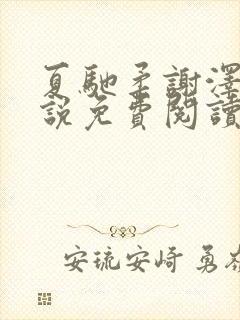 夏馳柔謝澤
說免費閱讀
安琉安崎 勇